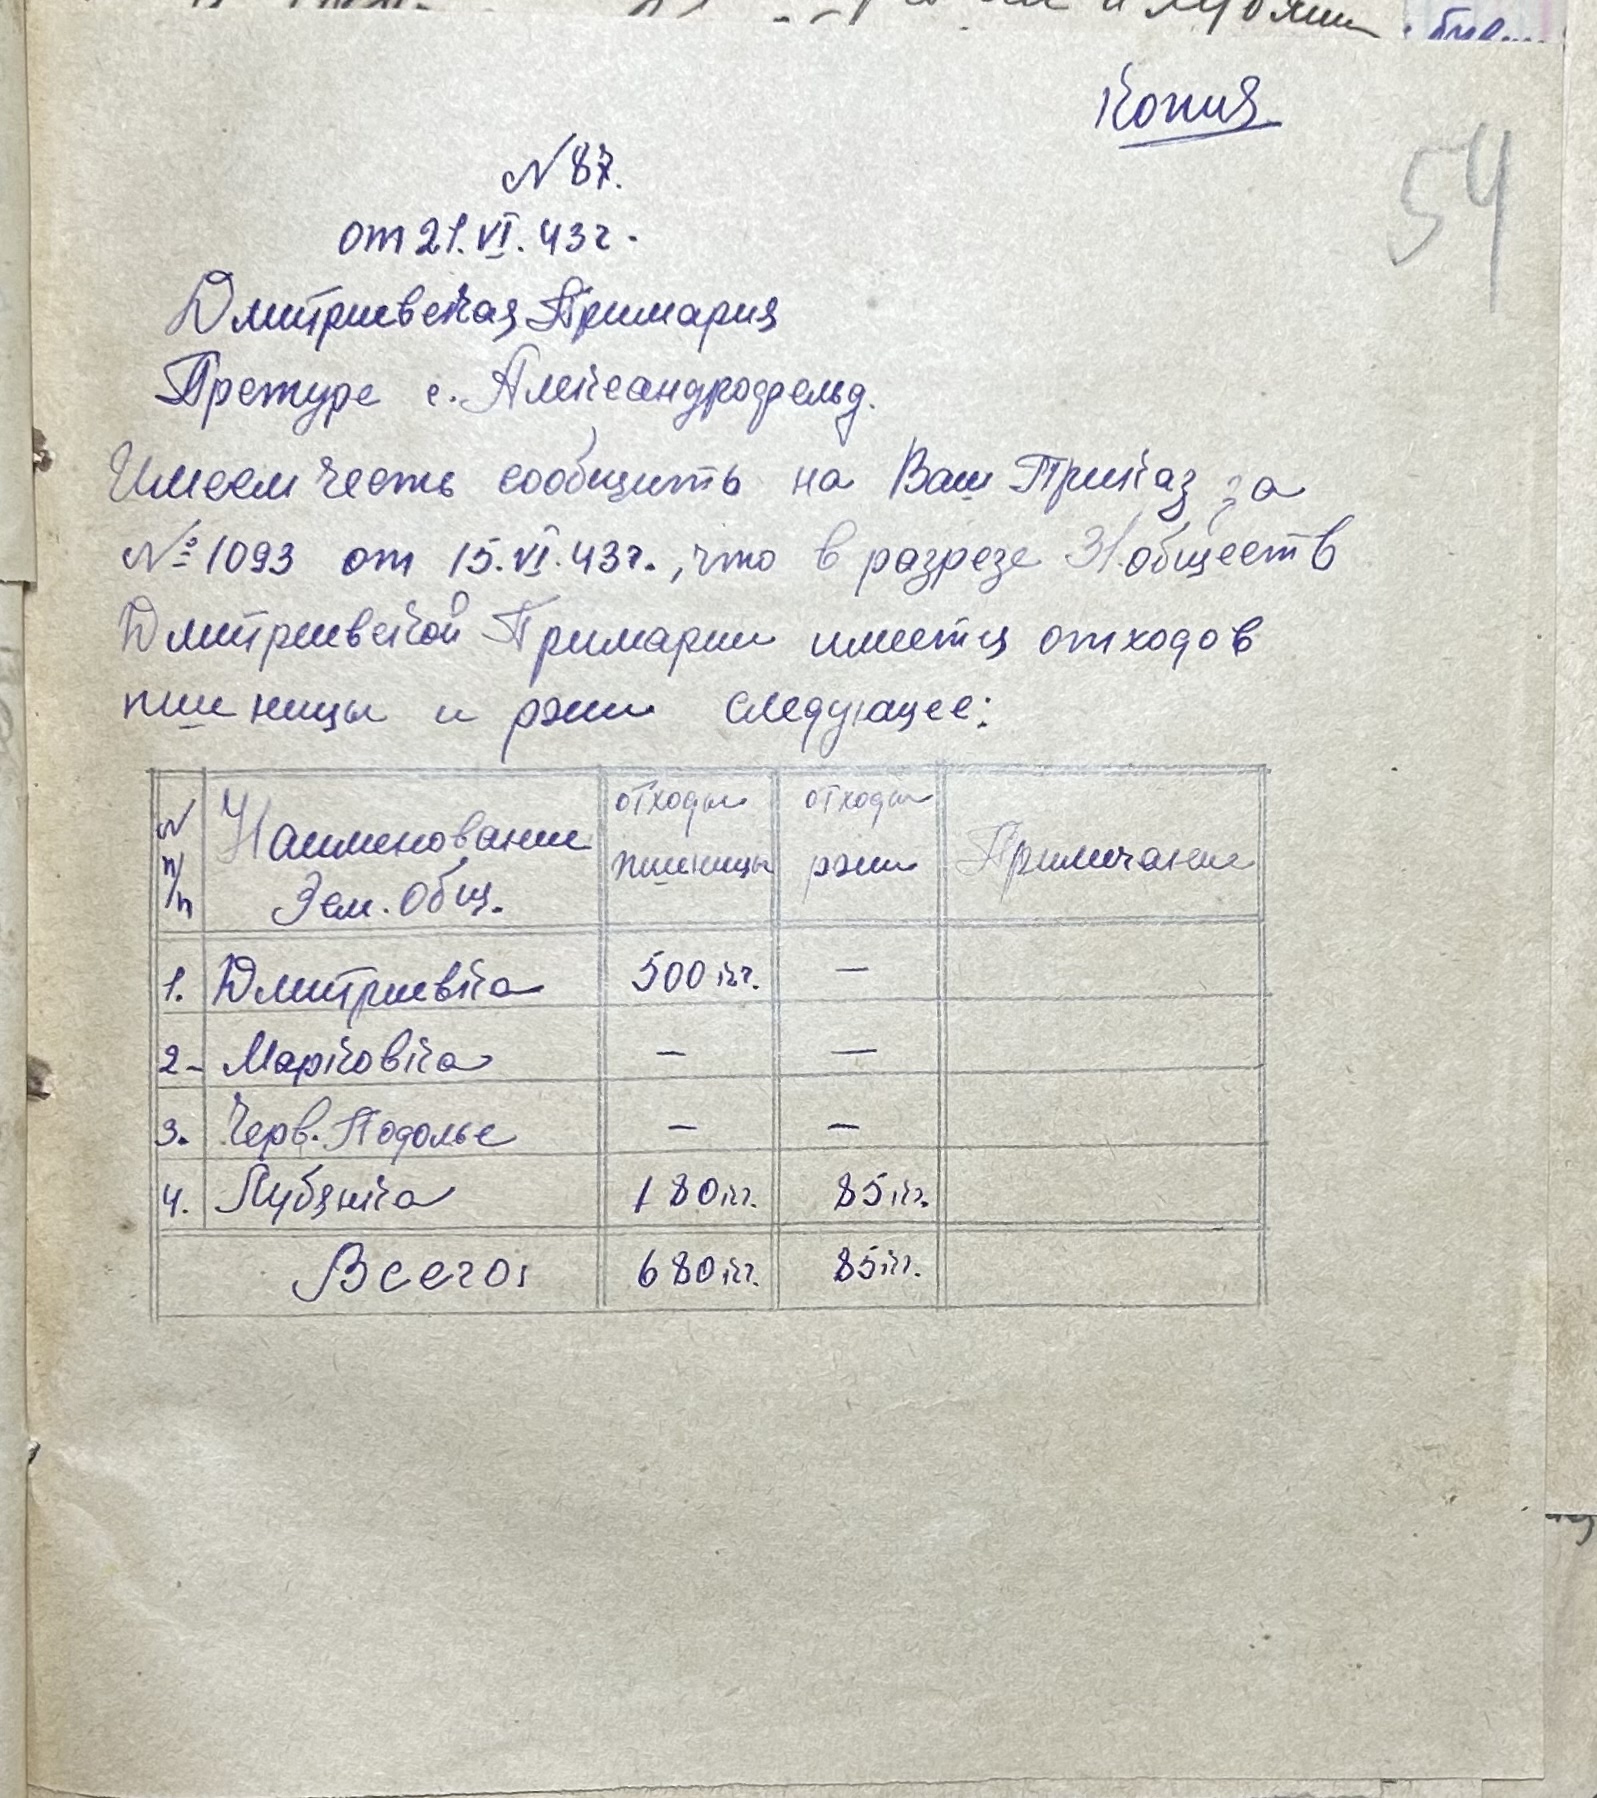 Копия
54
N 87.
от 21.VI.43г.
Дмитриевская Примария
Претуре с. Александрофельд.
Имеем честь сообщить на Ваш Приказ за
№ 1093 от 15.VI.43г., что в разрезе З/обществ
Дмитриевской Примарии имеется отходов
пшеницы и ржи следующее:
N п/п Наименование Зем. Общ. отходы пшеницы отходы ржи Примечание
1. Дмитриевка 500 кг. —
2- Марковка — —
3. Черв. Подолье — —
4. Лубянка 180 кг. 85 кг.
Всего: 680 кг. 85 кг.